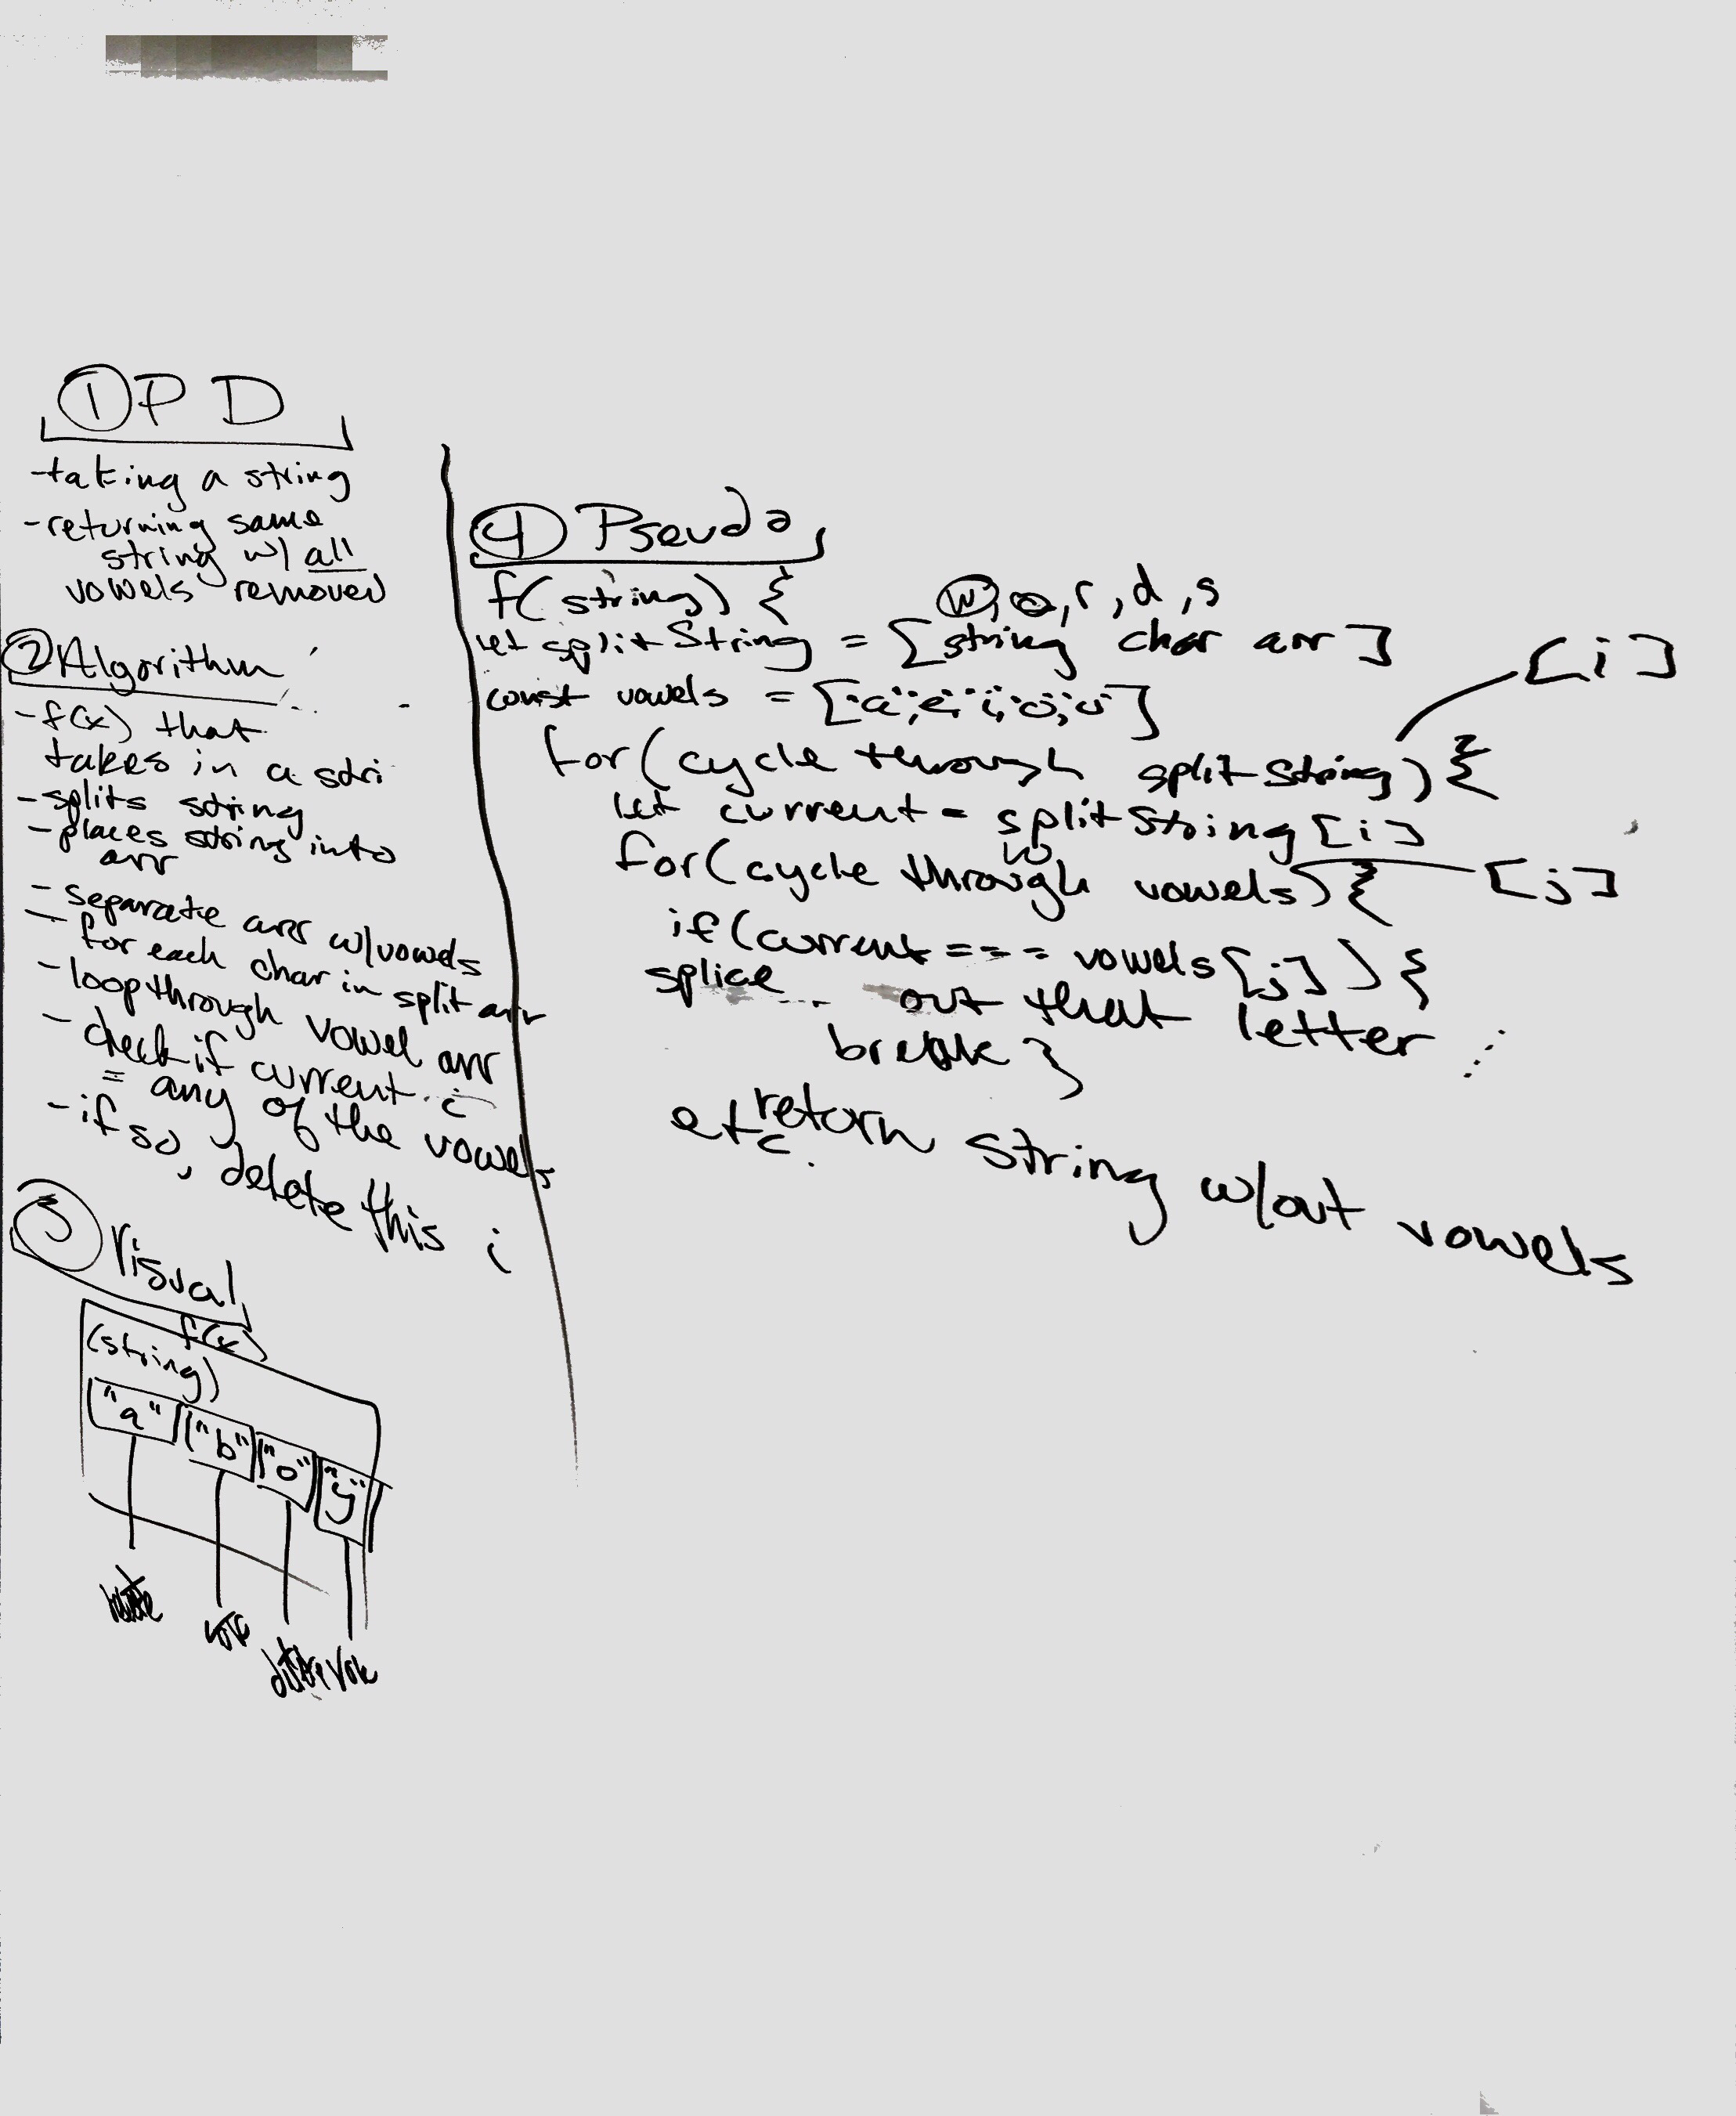 ① P D
-taking a string
-returning same
string w/ all
vowels removed
② Algorithm
-f(x) that
takes in a stri
-splits string
-places string into
arr
-separate arr w/vowels
-for each char in split arr
-loop through vowel arr
-check if current i
= any of the vowels
-if so, delete this i
③ Visual
f(x)
(string)
"a" "b" "o" "y"
④ Pseudo
f(string) {
w, o, r, d, s
let splitString = [string char arr]
const vowels = ['a','e','i','o','u']
for(cycle through splitString) {
[i]
let current = splitString[i]
for(cycle through vowels) {
[j]
if(current === vowels[j]) {
splice out that letter
break }
etc.
return string w/out vowels